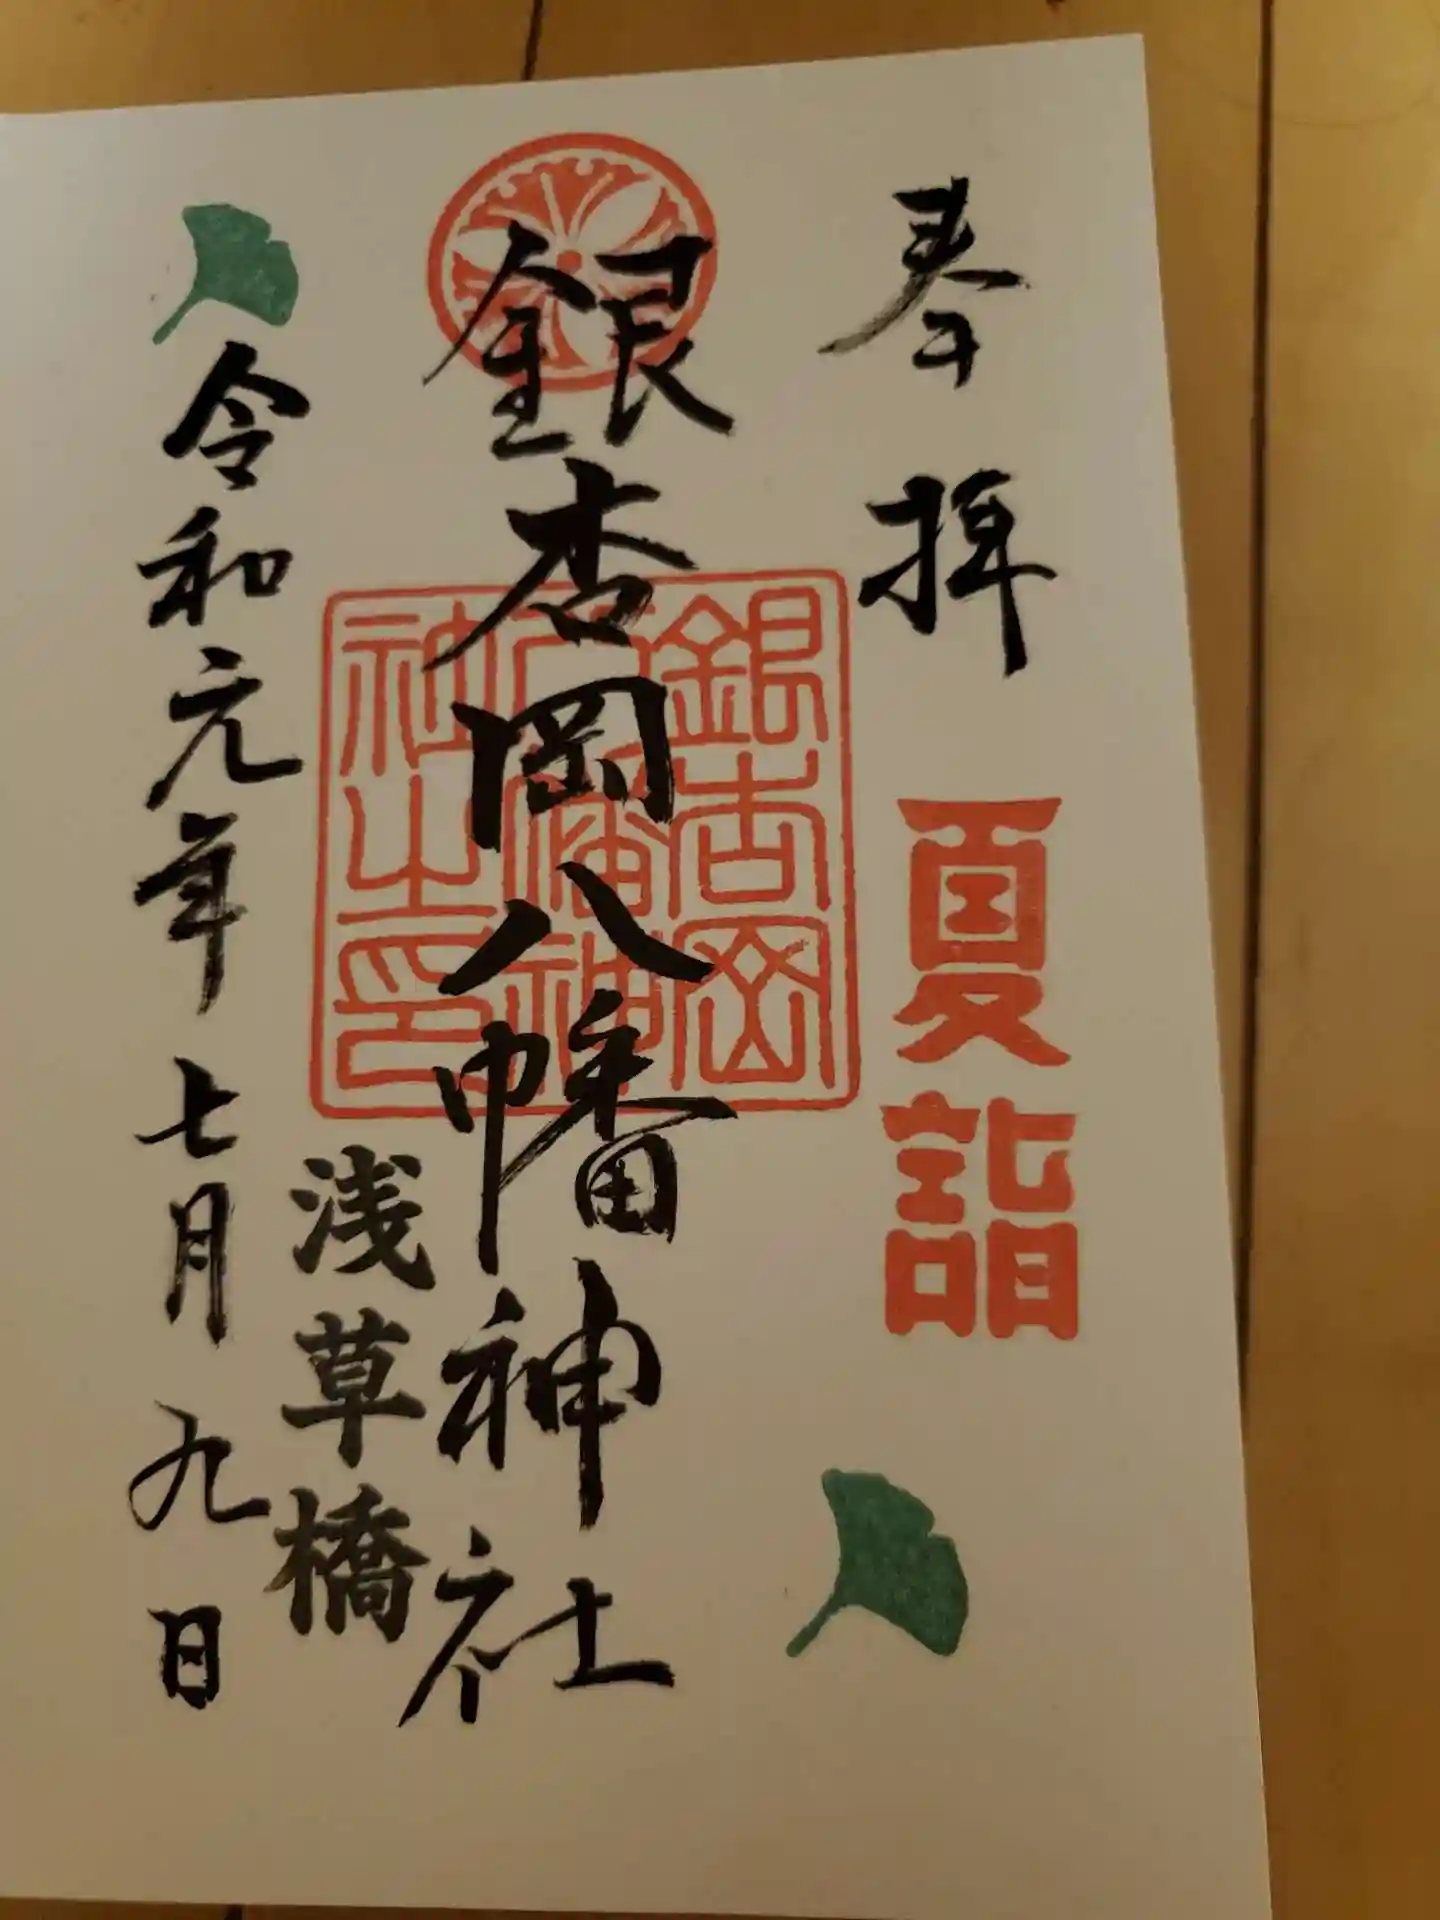 奉拝
夏詣
銀杏岡八幡神社
銀杏岡
八幡神
社之印
浅草橋
令和元年七月九日